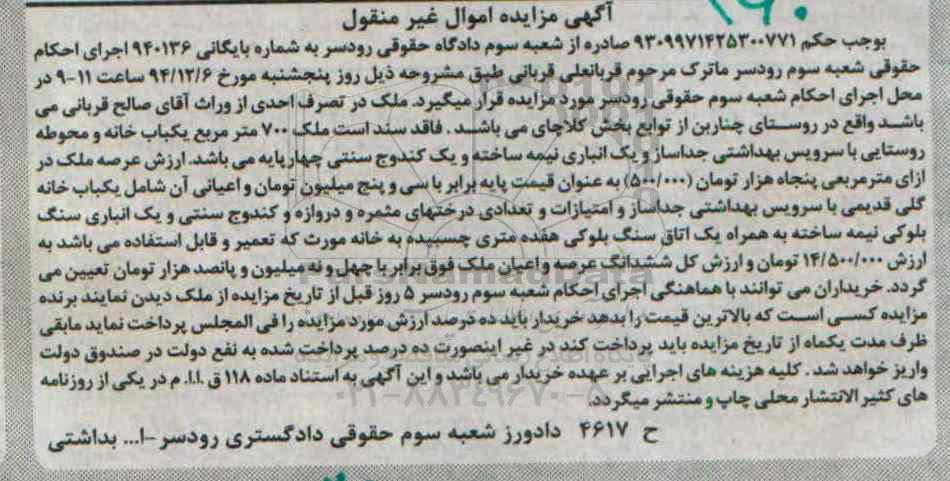 ۱۶۰
آگهی مزایده اموال غیر منقول
بوجب حکم ۹۳۰۹۹۷۱۴۲۵۳۰۰۷۷۱ صادره از شعبه سوم دادگاه حقوقی رودسر به شماره بایگانی ۹۴۰۱۳۶ اجرای احکام
حقوقی شعبه سوم رودسر ماترک مرحوم قربانعلی قربانی طبق مشروحه ذیل روز پنجشنبه مورخ ۹۴/۱۲/۶ ساعت ۱۱-۹ در
محل اجرای احکام شعبه سوم حقوقی رودسر مورد مزایده قرار میگیرد. ملک در تصرف احدی از وراث آقای صالح قربانی می
باشد واقع در روستای چنارین از توابع بخش کلاچای می باشد . فاقد سند است ملک ۷۰۰ متر مربع یکباب خانه و محوطه
روستایی با سرویس بهداشتی جداساز و یک انباری نیمه ساخته و یک کندوج سنتی چهارپایه می باشد. ارزش عرصه ملک در
ازای مترمربعی پنجاه هزار تومان (۵۰۰/۰۰۰) به عنوان قیمت پایه برابر با سی و پنج میلیون تومان و اعیانی آن شامل یکباب خانه
گلی قدیمی با سرویس بهداشتی جداساز و امتیازات و تعدادی درختهای مثمره و دروازه و کندوج سنتی و یک انباری سنگ
بلوکی نیمه ساخته به همراه یک اتاق سنگ بلوکی هفده متری چسبیده به خانه مورث که تعمیر و قابل استفاده می باشد به
ارزش ۱۴/۵۰۰/۰۰۰ تومان و ارزش کل ششدانگ عرصه و اعیان ملک فوق برابر با چهل و نه میلیون و پانصد هزار تومان تعیین می
گردد. خریداران می توانند با هماهنگی اجرای احکام شعبه سوم رودسر ۵ روز قبل از تاریخ مزایده از ملک دیدن نمایند برنده
مزایده کسی است که بالاترین قیمت را بدهد خریدار باید ده درصد ارزش مورد مزایده را فی المجلس پرداخت نماید مابقی
ظرف مدت یکماه از تاریخ مزایده باید پرداخت کند در غیر اینصورت ده درصد پرداخت شده به نفع دولت در صندوق دولت
واریز خواهد شد . کلیه هزینه های اجرایی بر عهده خریدار می باشد و این آگهی به استناد ماده ۱۱۸ ق .ا.ا. م در یکی از روزنامه
های کثیر الانتشار محلی چاپ و منتشر میگردد.
ح ۴۶۱۷ دادورز شعبه سوم حقوقی دادگستری رودسر -ا... بداشتی
ParsNamadData
۰۲۱-۸۸۳۴۹۶۷۰-۵